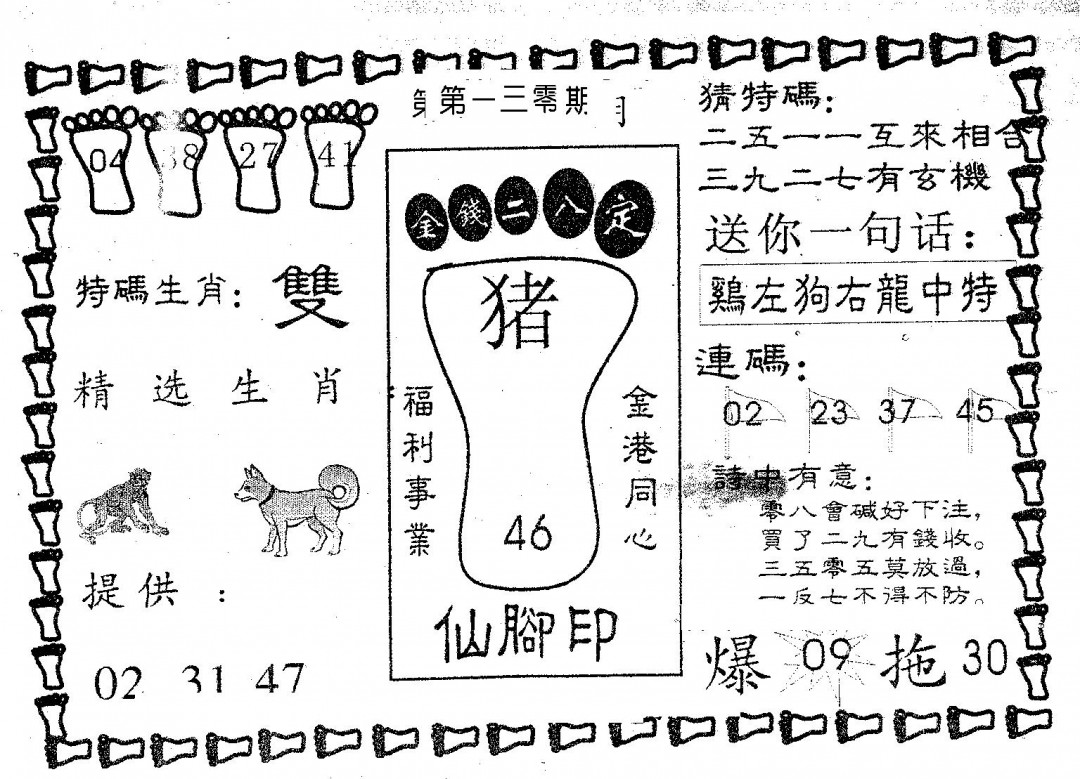 第一三零期
04 38 27 41
特碼生肖：雙
精选生肖
提供：
02 31 47
金錢二八定
猪
福利事業
金港同心
46
仙腳印
猜特碼：
二五一一互來相合
三九二七有玄機
送你一句话：
鷄左狗右龍中特
連碼：
02 23 37 45
詩中有意：
零八會碱好下注，
買了二九有錢收。
三五零五莫放過，
一反七不得不防。
爆 09 拖 30